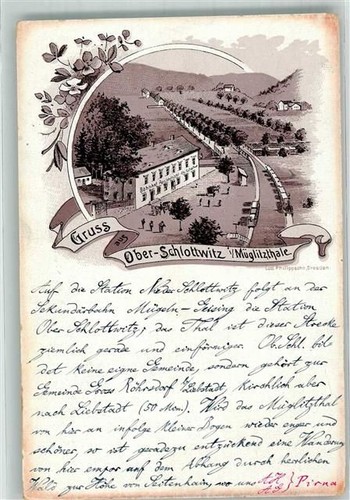 Gruss aus
Ober-Schlottwitz i/Müglitzthale.
Louis Philippsohn, Dresden
Auf die Station Nieder Schlottwitz folgt an der
Sekundärbahn Mügeln-Geising die Station
Ober Schlottwitz; das Thal ist dieser Strecke
ziemlich gerade und einförmiger. Ob. Schl. bil
det keine eigne Gemeinde, sondern gehört zur
Gemeinde Gross Röhrsdorf Liebstadt, kirchlich aber
nach Liebstadt (50 Min). Wird das Müglitzthal
von hier an infolge kleiner Bogen wieder enger und
schöner, so ist geradezu entzückend eine Wandrung
von hier empor auf dem Abhang durch herrlichen
Wald zur Höhe von Seitenhain, wo uns
Pirna